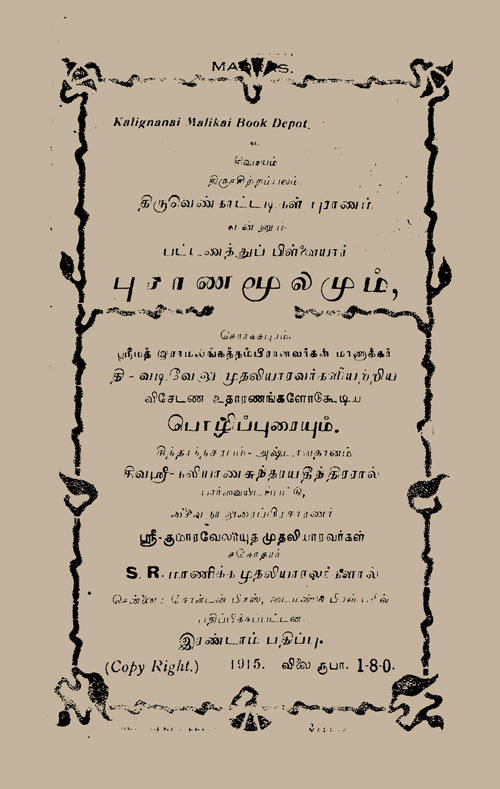 Kalignanai Malikai Book Depot.
உ
சிவமயம்
திருச்சிற்றம்பலம்.
திருவெண்காட்டடிகள் புராணம்
என்னும்
பட்டணத்துப் பிள்ளையார்
புராணமூலமும்,
ஸ்ரீமத் இராமலிங்கத்தம்பிரானவர்கள் மாணாக்கர்
தி-வடிவேலு முதலியாரவர்களியற்றிய
விசேடண உதாரணங்களோடுகூடிய
பொழிப்புரையும்.
அஷ்டாவதானம்
சிவஸ்ரீ-கலியாணசுந்தரயதீந்திரரால்
பார்வையிடப்பட்டு,
ஸ்ரீ-குமாரவேலாயுத முதலியாரவர்கள்
சகோதரர்
S. R. மாணிக்க முதலியாரவர்களால்
சென்னை:
பதிப்பிக்கப்பட்டன.
இரண்டாம் பதிப்பு.
(Copy Right.) 1915. விலை ரூபா. 1-8-0.